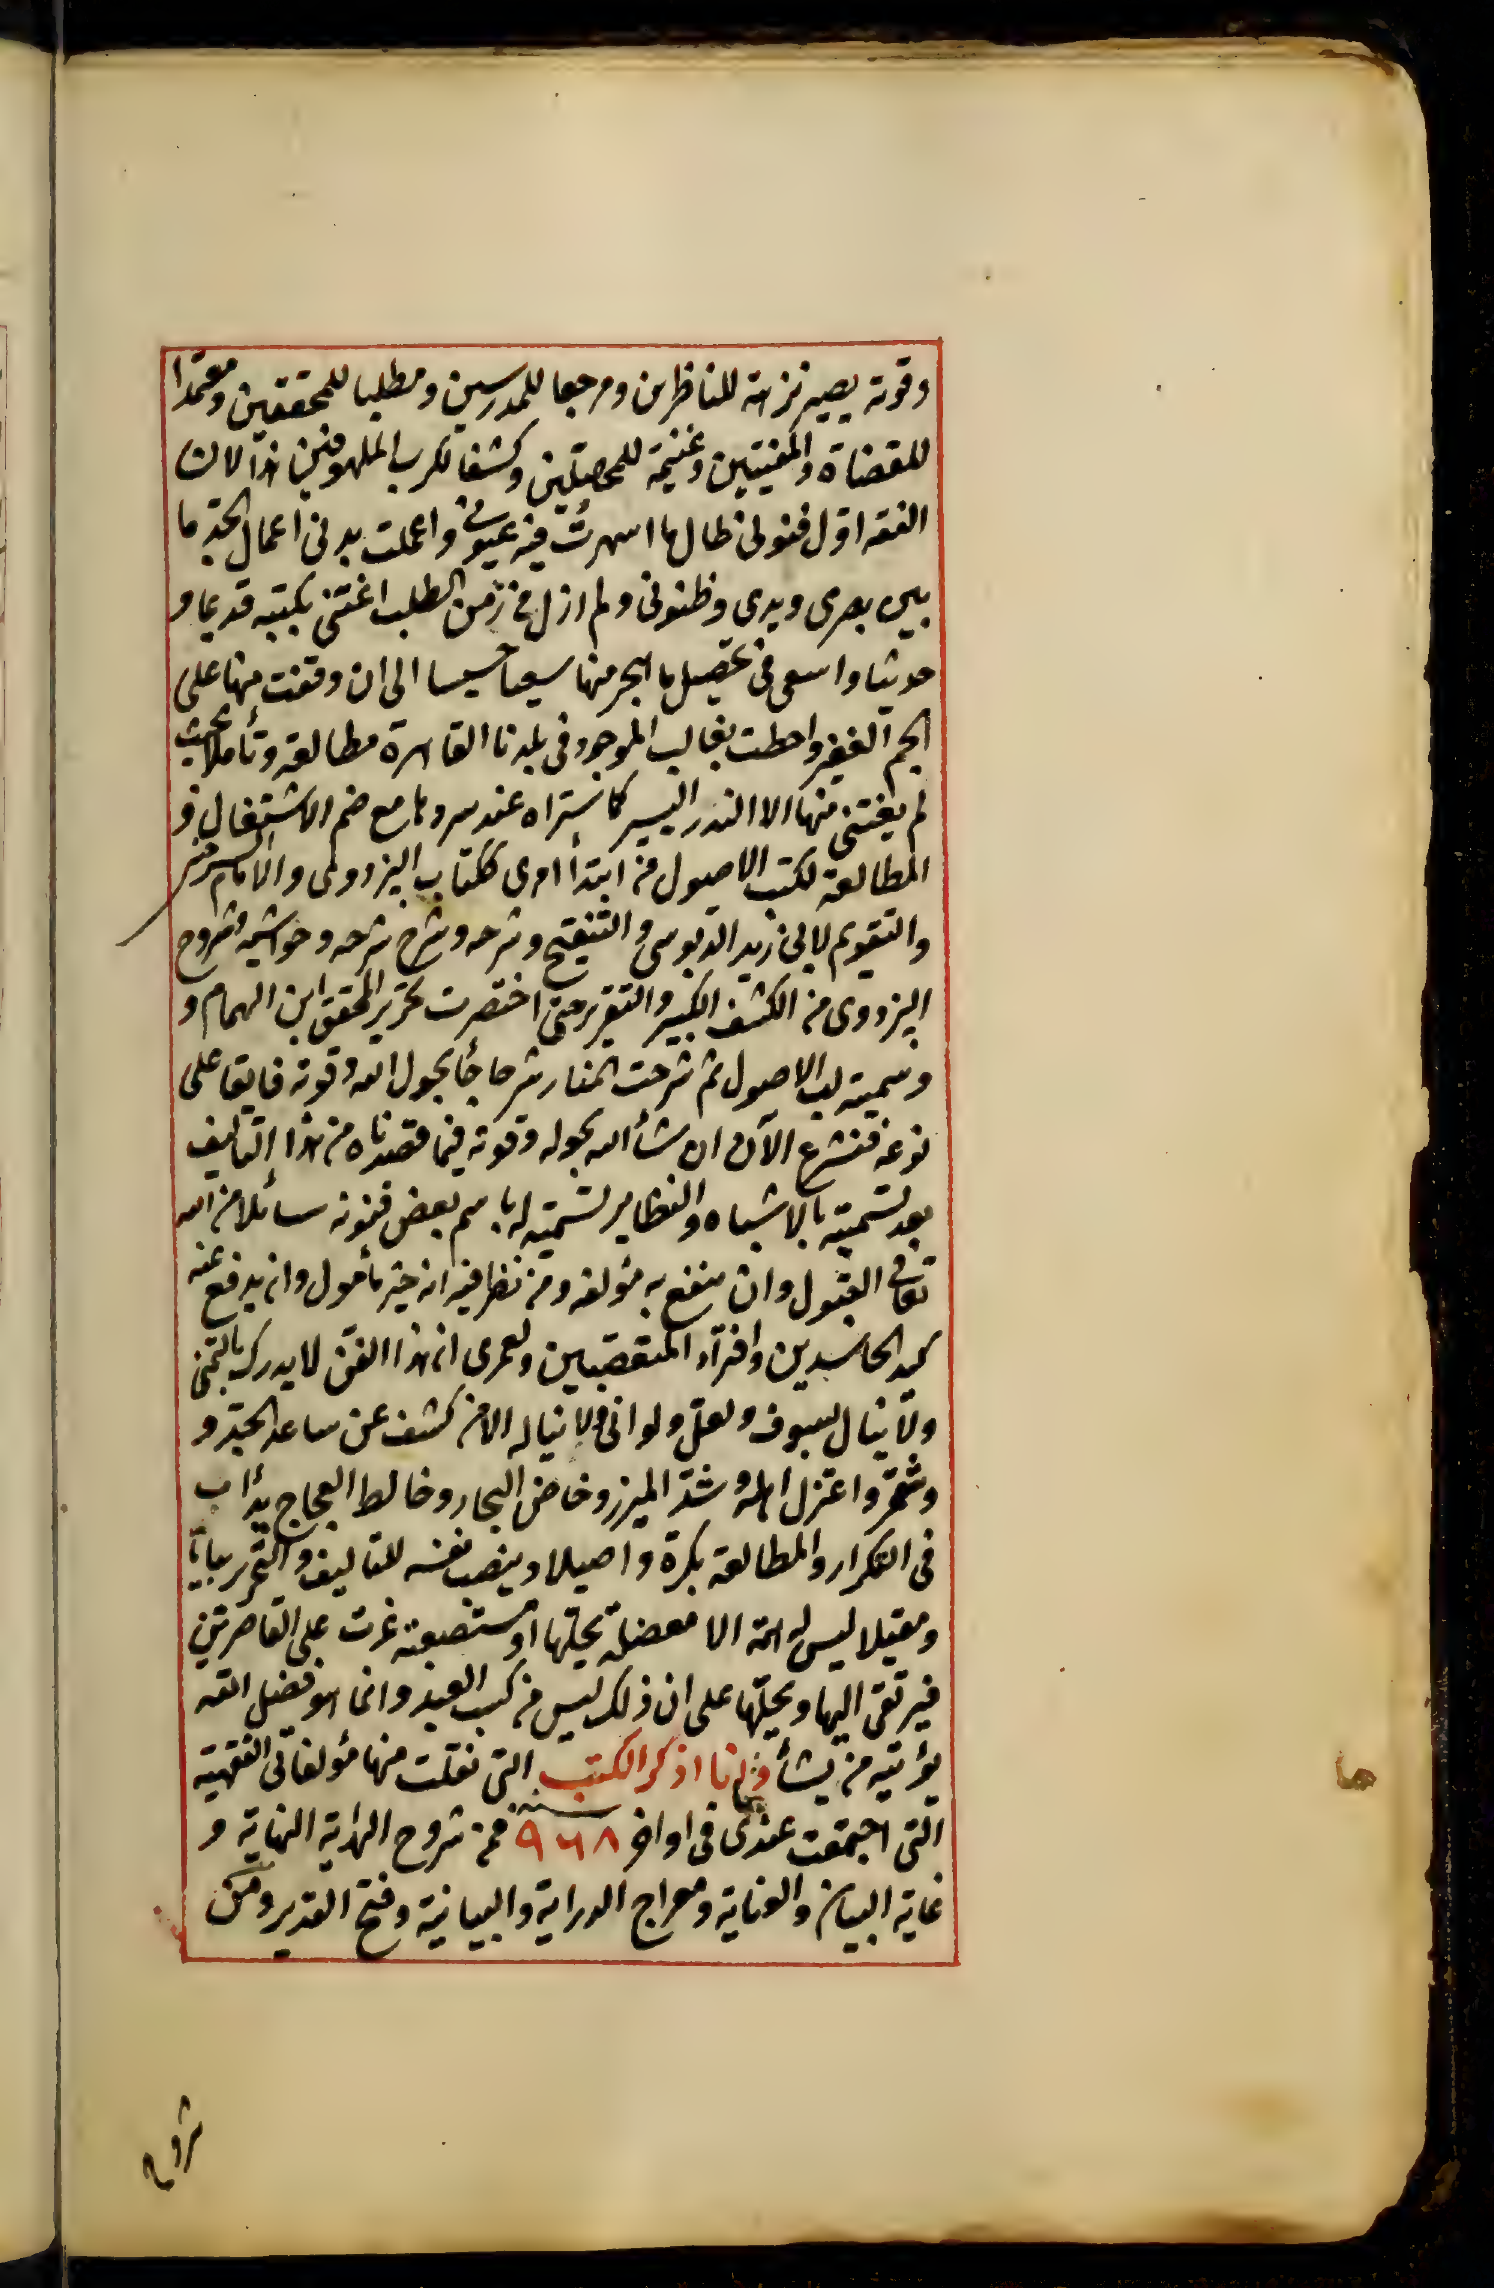 وقوته يصير نزهة للناظرين ومرجعا للمدرسين ومطلبا للمحققين ومعتمدا
للقضاة والمفتيين وغنيمة للمحصلين وكشفا لكرب الملهوفين هذا لان
الفقه اول فنونى طال ما اسهرت فيه عيونى واعملت بدنى اعمال الجد ما
بين بصرى ويدى وظنونى ولم ازل من زمن الطلب اعتنى بكتبه قديما و
حديثا واسعى فى تحصيل ما هجر منها سعيا حسيسا الى ان وقفت منها على
الجم الغفير واحطت بغالب الموجود فى بلدنا القاهرة مطالعة وتأملا بحيث
لم يفتنى منها الا النذر اليسير كما ستراه عند سردها مع ضم الاشتغال و
المطالعة لكتب الاصول من ابتدأ امرى ككتاب البزدوى والامام السرخسى
والتقويم لابى زيد الدبوسى والتنقيح وشرحه وشرح شرحه وحواشيه وشروح
البزدوى من الكشف الكبير والتقرير حتى اختصرت تحرير المحقق ابن الهمام و
وسميته لب الاصول ثم شرحت المنار شرحا جأ بحول الله وقوته فايقا على
نوعه فنشرع الآن ان شأ الله بحوله وقوته فيما قصدناه من هذا التاليف
بعد تسميته بالاشباه والنظاير تسمية له باسم بعض فنونه سائلا من الله
تعالى القبول وان ينفع به مؤلفه ومن نظر فيه انه خير مأمول وان يدفع عنه
كيد الحاسدين وافترآء المتعصبين ولعمرى ان هذا الفن لا يدرك بالتمنى
ولا ينال بسوف ولعل ولو انى ولا يناله الا من كشف عن ساعد الجد و
وشمر واعتزل اهله وشد الميزر وخاض البحار وخالط العجاج يدأب
فى التكرار والمطالعة بكرة واصيلا وينصب نفسه للتاليف والتحرير بياتا
ومقيلا ليس له همة الا معضلة يحلها او مستصعبة عزت على القاصرين
فيرتقى اليها ويحلها على ان ذلك ليس من كسب العبد وانما هو فضل الله
يؤتيه من يشأ وها انا اذكر الكتب التى نقلت منها مؤلفاتى الفقهية
التى اجتمعت عندى فى اواخر سنة ٩٦٨ فمن شروح الهداية النهاية و
غاية البيان والعناية ومعراج الدراية والبيانية وفتح القدير ومن